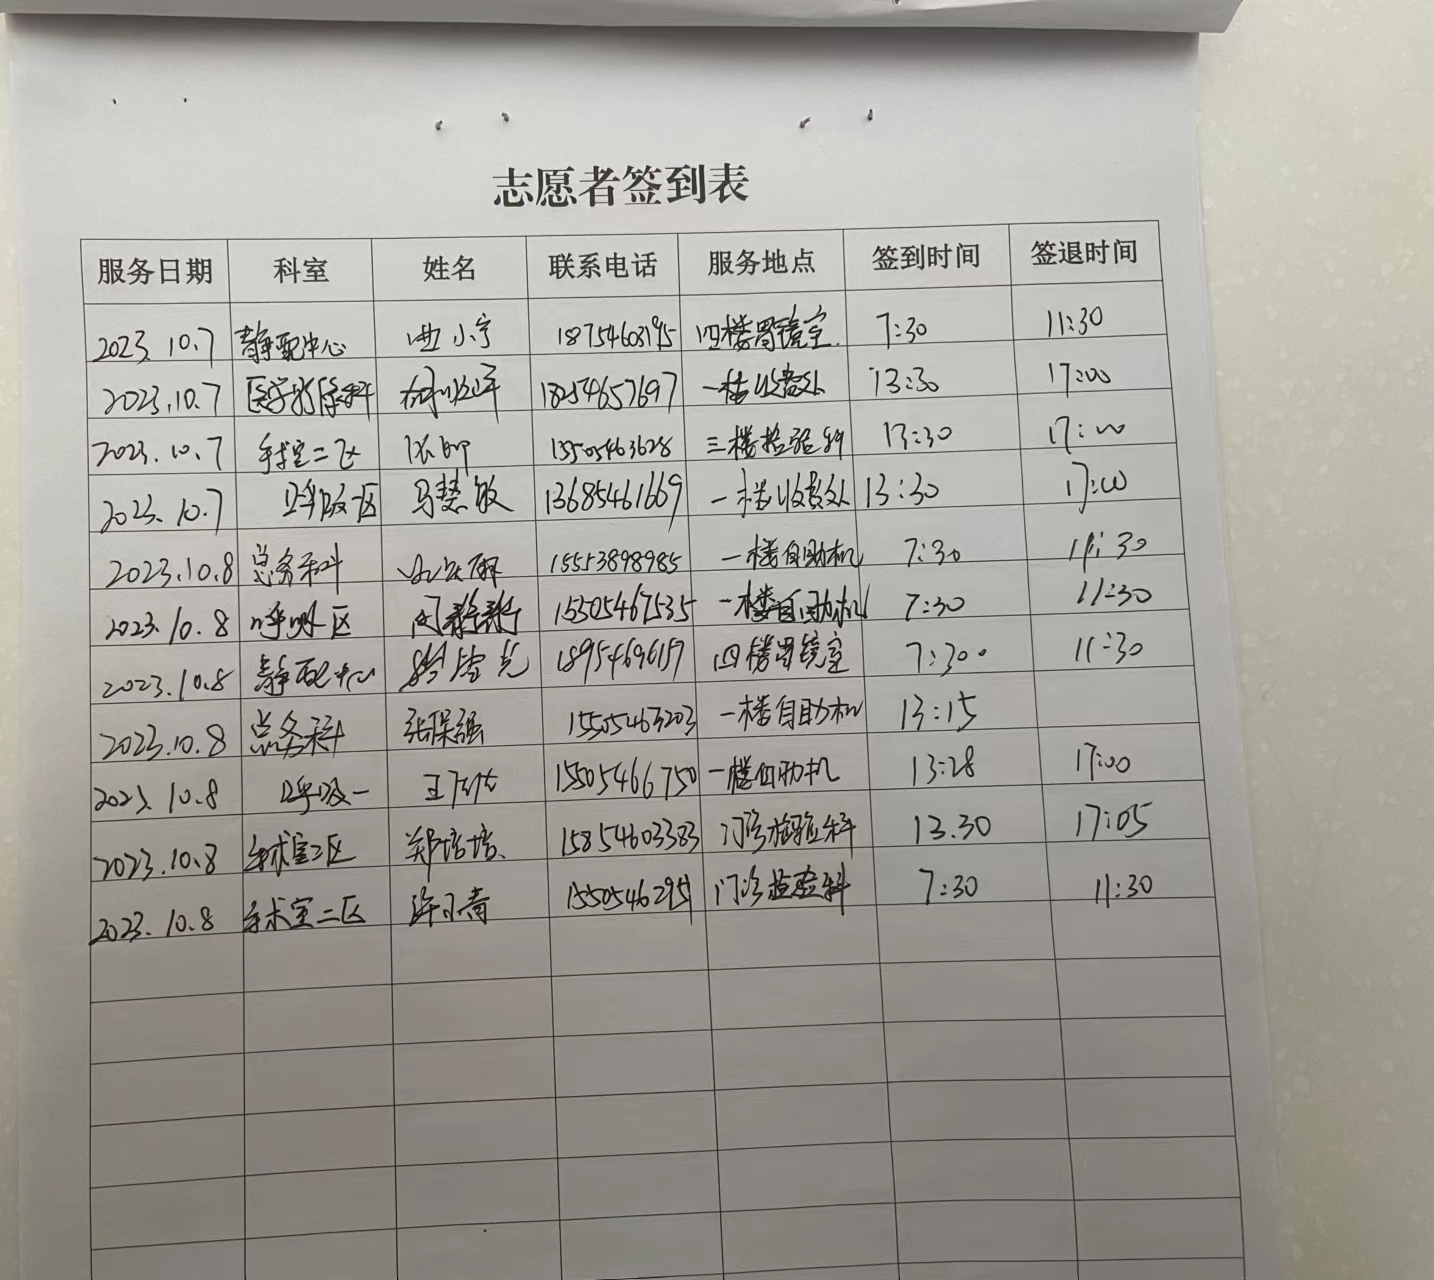 志愿者签到表
服务日期 科室 姓名 联系电话 服务地点 签到时间 签退时间
2023.10.7 静配中心 曲小宁 18754603195 四楼胃镜室. 7:30 11:30
2023.10.7 医学影像科 18254657697 一楼收费处 13:30 17:00
2023.10.7 手术室二区 13505463628 三楼检验科 13:30 17:00
2023.10.7 呼吸一区 马慧敏 13685461669 一楼收费处 13:30 17:00
2023.10.8 总务科 15553898985 一楼自助机 7:30 11:30
2023.10.8 呼吸区 闫静静 15305467535 一楼自助机 7:30 11:30
2023.10.8 静配中心 18954696157 四楼胃镜室 7:30 11:30
2023.10.8 总务科 张保强 15505463203 一楼自助机 13:15
2023.10.8 呼吸一 15505466750 一楼自助机 13:28 17:00
2023.10.8 手术室二区 郑培培 15854603383 门诊检验科 13.30 17:05
2023.10.8 手术室二区 许小青 15505462951 门诊检验科 7:30 11:30